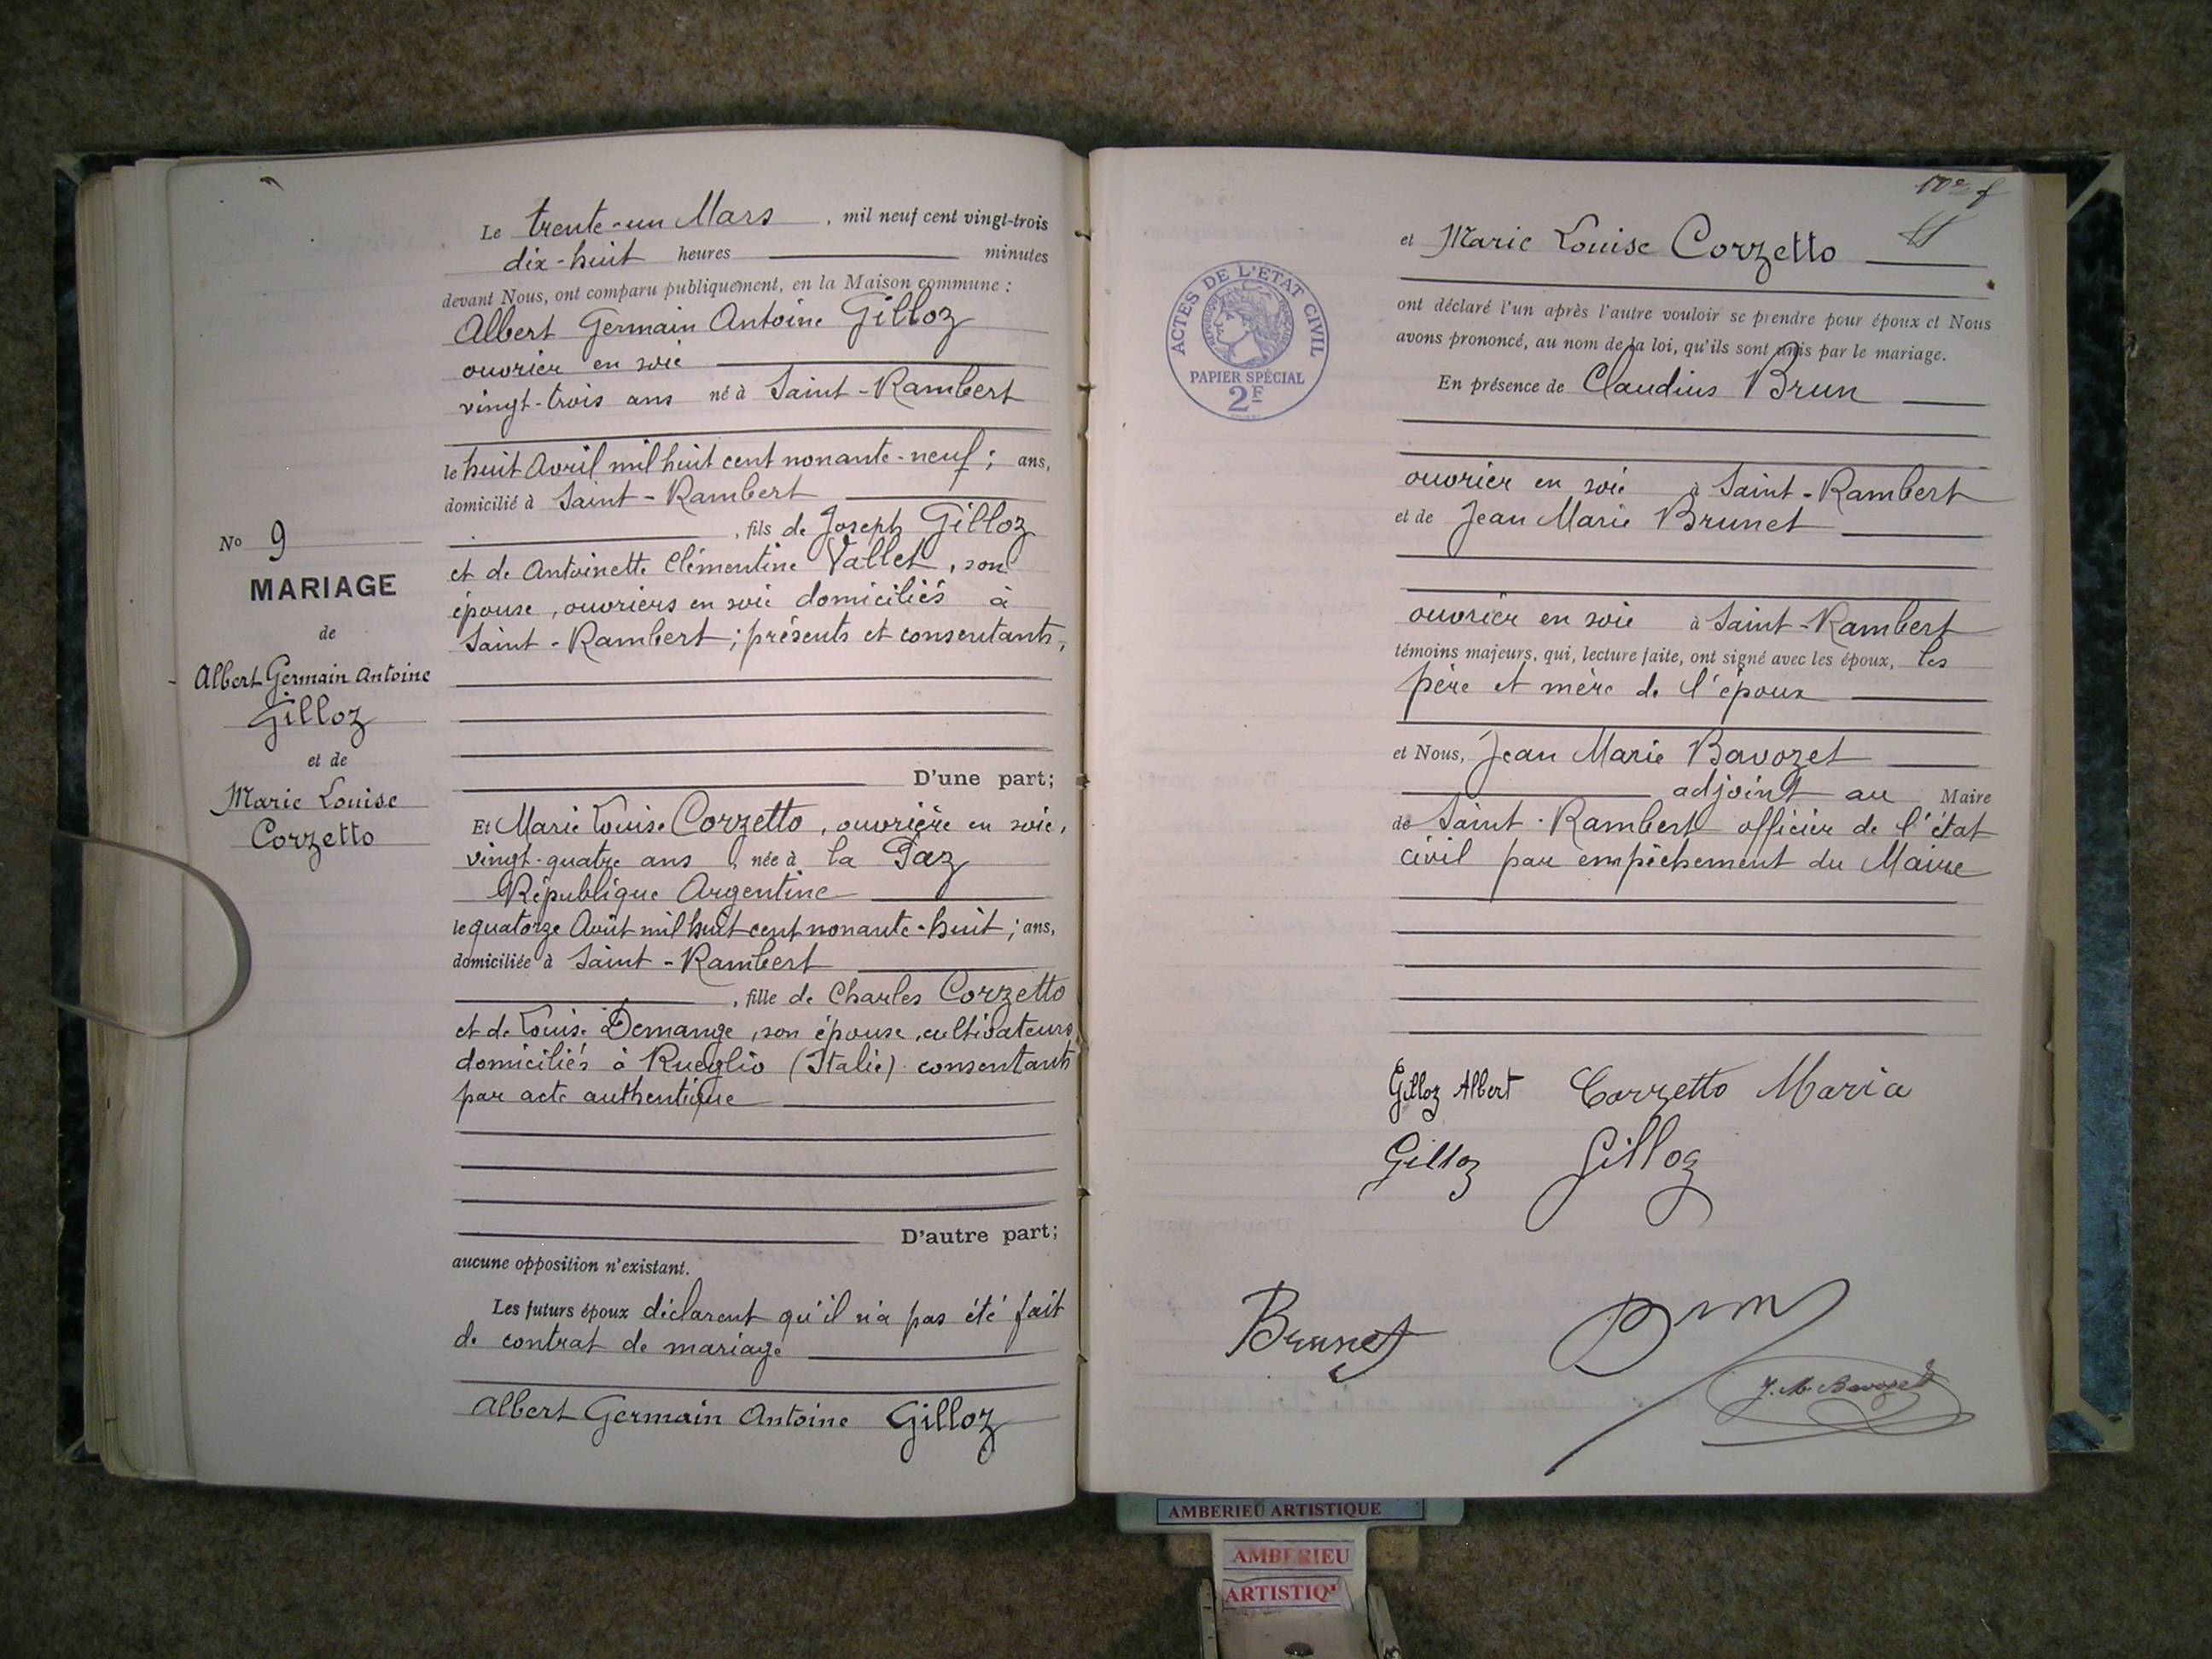 Le trente-un Mars, mil neuf cent vingt-trois
dix-huit heures minutes
devant Nous, ont comparu publiquement, en la Maison commune :
Albert Germain Antoine Gilloz
ouvrier en soie
vingt-trois ans né à Saint-Rambert
le huit Avril mil huit cent nonante-neuf ; ans,
domicilié à Saint-Rambert
, fils de Joseph Gilloz
et de Antoinette Clémentine Vallet, son
épouse, ouvriers en soie domiciliés à
Saint-Rambert ; présents et consentants,
D'une part;
Et Marie Louise Corzetto, ouvrière en soie,
vingt-quatre ans, née à la Paz
République Argentine
le quatorze Août mil huit cent nonante-huit ; ans,
domiciliée à Saint-Rambert
, fille de Charles Corzetto
et de Louise Demange, son épouse, cultivateurs
domiciliés à Rueglio (Italie) consentants
par acte authentique
D'autre part;
aucune opposition n'existant.
Les futurs époux déclarent qu'il n'a pas été fait
de contrat de mariage
Albert Germain Antoine Gilloz
No 9
MARIAGE
de
Albert Germain Antoine
Gilloz
et de
Marie Louise
Corzetto
et Marie Louise Corzetto
ACTES DE L'ÉTAT CIVIL
PAPIER SPÉCIAL
2F
ont déclaré l'un après l'autre vouloir se prendre pour époux et Nous
avons prononcé, au nom de la loi, qu'ils sont unis par le mariage.
En présence de Claudius Brun
ouvrier en soie à Saint-Rambert
et de Jean Marie Brunet
ouvrier en soie à Saint-Rambert
témoins majeurs, qui, lecture faite, ont signé avec les époux, les
père et mère de l'époux
et Nous, Jean Marie Bavozet
adjoint au Maire
de Saint-Rambert officier de l'état
civil par empêchement du Maire
Gilloz Albert Corzetto Maria
Gilloz Gilloz
Brunet Brun
J. M. Bavozet
AMBERIEU ARTISTIQUE
AMBERIEU
ARTISTIQ